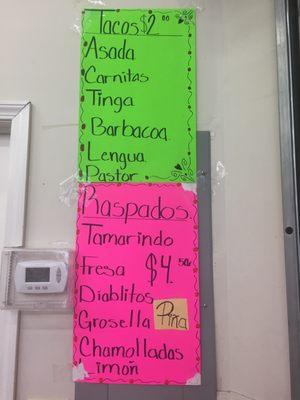 Tacos $2.00
Asada
Carnitas
Tinga
Barbacoa
Lengua
Pastor
Raspados
Tamarindo
Fresa $4.50¢
Diablitos
Grosella Piña
Chamolladas
imon